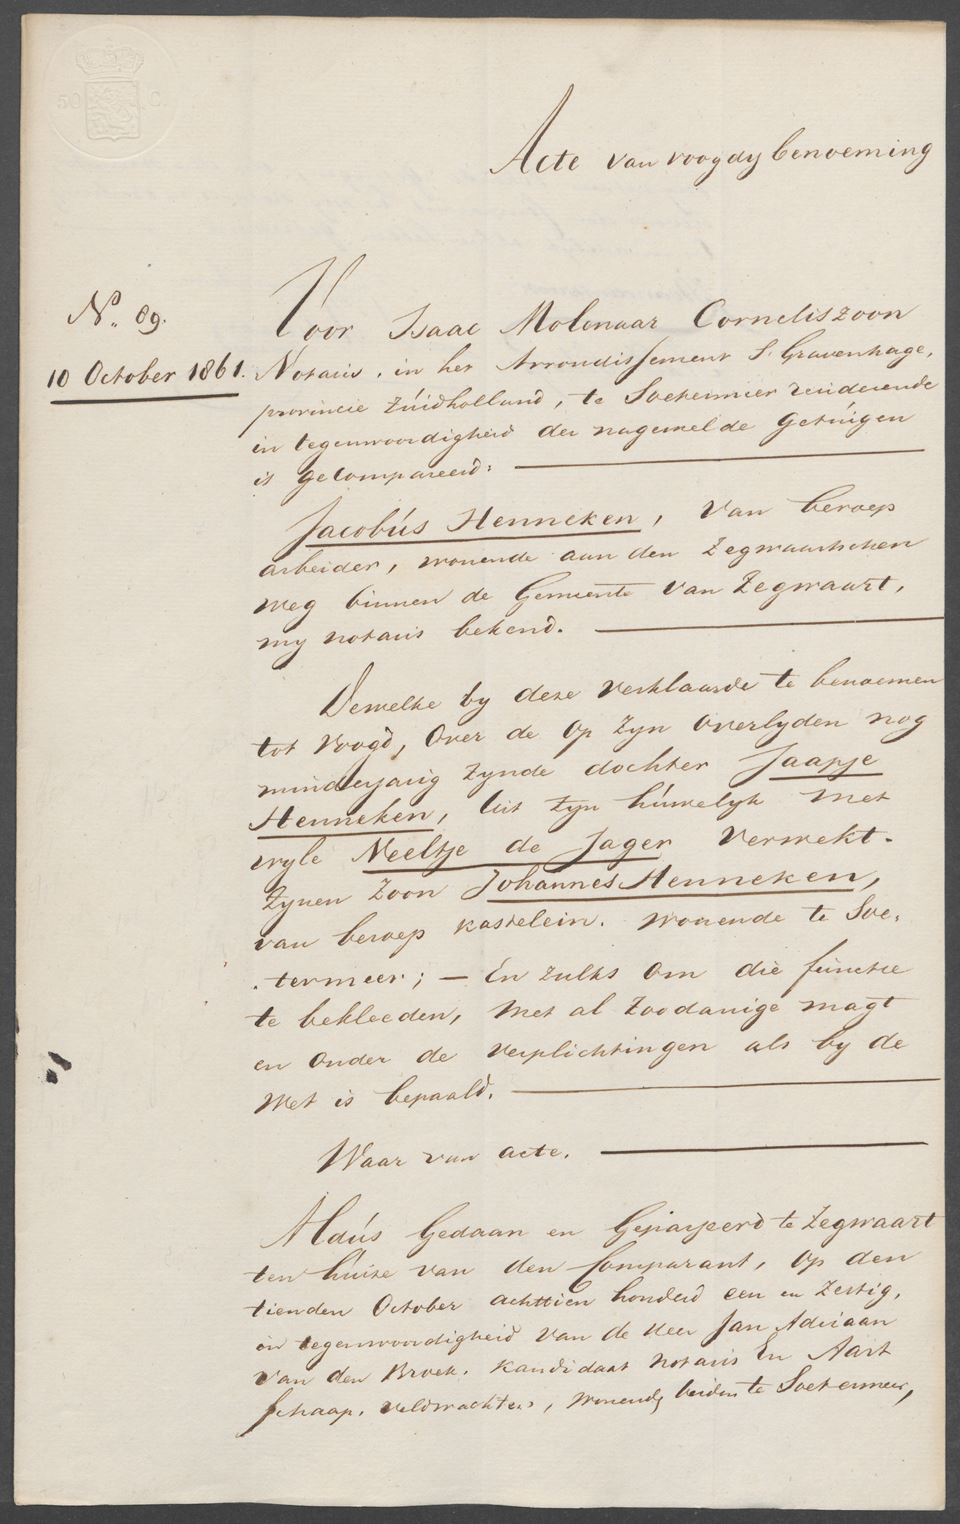 50 C.
Acte van voogdy benoeming
No. 89.
10 October 1861.
Voor Isaac Molenaar Corneliszoon
Notaris, in het Arrondissement S' Gravenhage,
provincie Zúidholland, te Soetermeer resideerende
in tegenwoordigheid der nagemelde getúigen
is gecompareerd:
Jacobús Henneken, van beroep
arbeider, wonende aan den Zegwaartschen
weg binnen de Gemeente van Zegwaart,
my notaris bekend.
Dewelke by deze verklaarde te benoemen
tot voogd, over de op zyn overlyden nog
minderjarig zynde dochter Jaapje
Henneken, uit zyn húwelyk met
wyle Neeltje de Jager verwekt.
zynen zoon Johannes Henneken,
van beroep kastelein. wonende te Soe,
. termeer; — En zulks om die functie
te bekleeden, met al zoodanige magt
en onder de verplichtingen als by de
Wet is bepaald.
Waar van acte.
Aldús Gedaan en Gepasseerd te Zegwaart
ten húize van den Comparant, op den
tienden October achttien honderd een en zestig,
in tegenwoordigheid van de Heer Jan Adriaan
van den Broek, kandidaat notaris En Aart
Schaap, veldwachter, wonende beiden te Soetermeer,